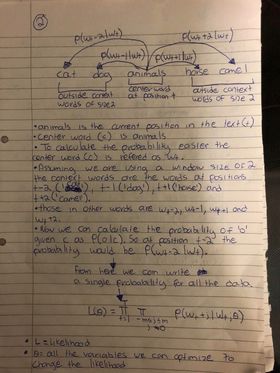 ②
P(wt-2|wt) P(wt+2|wt)
P(wt-1|wt) P(wt+1|wt)
cat dog animals horse camel
outside context center word outside context
words of size 2 at position t words of size 2
• animals is the current position in the text (t)
• center word (c) is animals
• To calculate the probability easier the
center word (c) is refered as Wt.
• Assuming we are using a window size of 2
the context words are the words at positions
t-2, t-1 ('dog'), t+1 ('horse') and
t+2 ('camel').
• those in other words are wt-2, wt-1, wt+1 and
wt+2.
• Now we can calculate the probability of 'o'
given c as P(o|c). So at position t-2 the
probability would be P(wt-2|wt).
From here we can write
a single probability for all the data.
L(θ) = T∏t=1 ∏-m≤j≤m j≠0 P(wt+j|wt,θ)
• L = likelihood
• θ = all the variables we can optimize to
change the likelihood